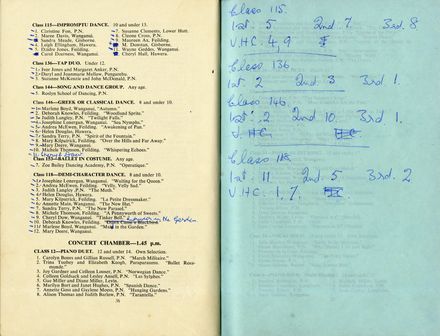 Class 115—IMPROMPTU DANCE. 10 and under 13.
1. Christine Fox, P.N.
2. Maree Davis, Wanganui.
3. Sandra Steele, Gisborne.
4. Leigh Ellingham, Hawera.
5. Deidre Jones, Feilding.
6. Carol Duerness, Wanganui.
7. Susanne Clemetto, Lower Hutt.
8. Cleone Cross, P.N.
9. Maureen Ma, Feilding.
10. M. Dunstan, Gisborne.
11. Wayne Geddes, Wanganui.
12. Cheryl Hall, Hawera.
Class 136—TAP DUO. Under 12.
1. Fear Jones and Margaret Anker, P.N.
2. Daryl and Jeanmarie Mellow, Pungarehu.
3. Suzanne McKenzie and John McDonald, P.N.
Class 144—SONG AND DANCE GROUP. Any age.
1. Roslyn School of Dancing, P.N.
Class 146—GREEK OR CLASSICAL DANCE. 8 and under 10.
1. Marlene Boyd, Wanganui, "Autumn."
2. Deborah Knowles, Feilding, "Woodland Sprite."
3. Judith Langley, P.N. "Twilight Falls."
4. Josephine Lourengo, Wanganui, "Sea Nymph."
5. Andrea McEwen, Feilding, "Awakening of Pan."
6. Helen Douglas, Hawera.
7. Sandra Terry, P.N. "Spirit of the Fountain."
8. Mary Kilpatrick, Feilding, "Over the Hills and Far Away."
9. Mary Deere, Wanganui.
10. Michele Thomson, Feilding, "Whispering Echoes."
Class 153—BALLET IN COSTUME. Any age.
7. Zoe Bulley Dancing Academy, P.N. "Operatique."
Class 118—DEMI-CHARACTER DANCE. 8 and under 10.
1. Josephine Lourengo, Wanganui, "Waiting for the Queen."
2. Andrea McEwen, Feilding, "Velly, Velly Sad."
3. Judith Langley, P.N. "The Moth."
4. Helen Douglas, Hawera.
5. Mary Kilpatrick, Feilding, "La Petite Dressmaker."
6. Annette Main, Wanganui, "The New Hat."
7. Sandra Terry, P.N. "The New Pursuit."
8. Michele Thomson, Feilding, "A Pennyworth of Sweets."
9. Cheryl Dow, Wanganui, "Tinker Bell."
10. Deborah Knowles, Feilding,
11. Marlene Boyd, Wanganui, "Maid in the Garden."
12. Mary Deere, Wanganui.
CONCERT CHAMBER—1.45 p.m.
CLASS 12—PIANO DUET. 12 and under 14. Own Selection.
1. Carolyn Bones and Gillian Russell, P.N. "March Militaire."
2. Trina Tuohey and Elizabeth Keogh, Paraparaumu. "Ballet Rosamonde."
3. Joy Gardner and Colleen Lusser, P.N. "Norwegian Dance."
4. Colleen Goldsack and Lesley Ansell, P.N. "Les Sylphes."
5. Gae Miller and Diane Miller, Levin.
6. Marilyn Bort and Janet Hughes, P.N. "Spanish Dance."
7. Annette Goss and Guylene Moon, P.N. "Hanging Gardens."
8. Alison Thomas and Judith Barlow, P.N. "Tarantella."
36
Class 115
1st. 5 2nd. 7 3rd. 8
V.H.C. 4, 9
Class 136
1st. 2 2nd. 3 3rd. 1
Class 146
1st. 2 2nd. 10 3rd. 1
Class 118
1st. 11 2nd. 5 3rd. 2
V.H.C. 1, 7.